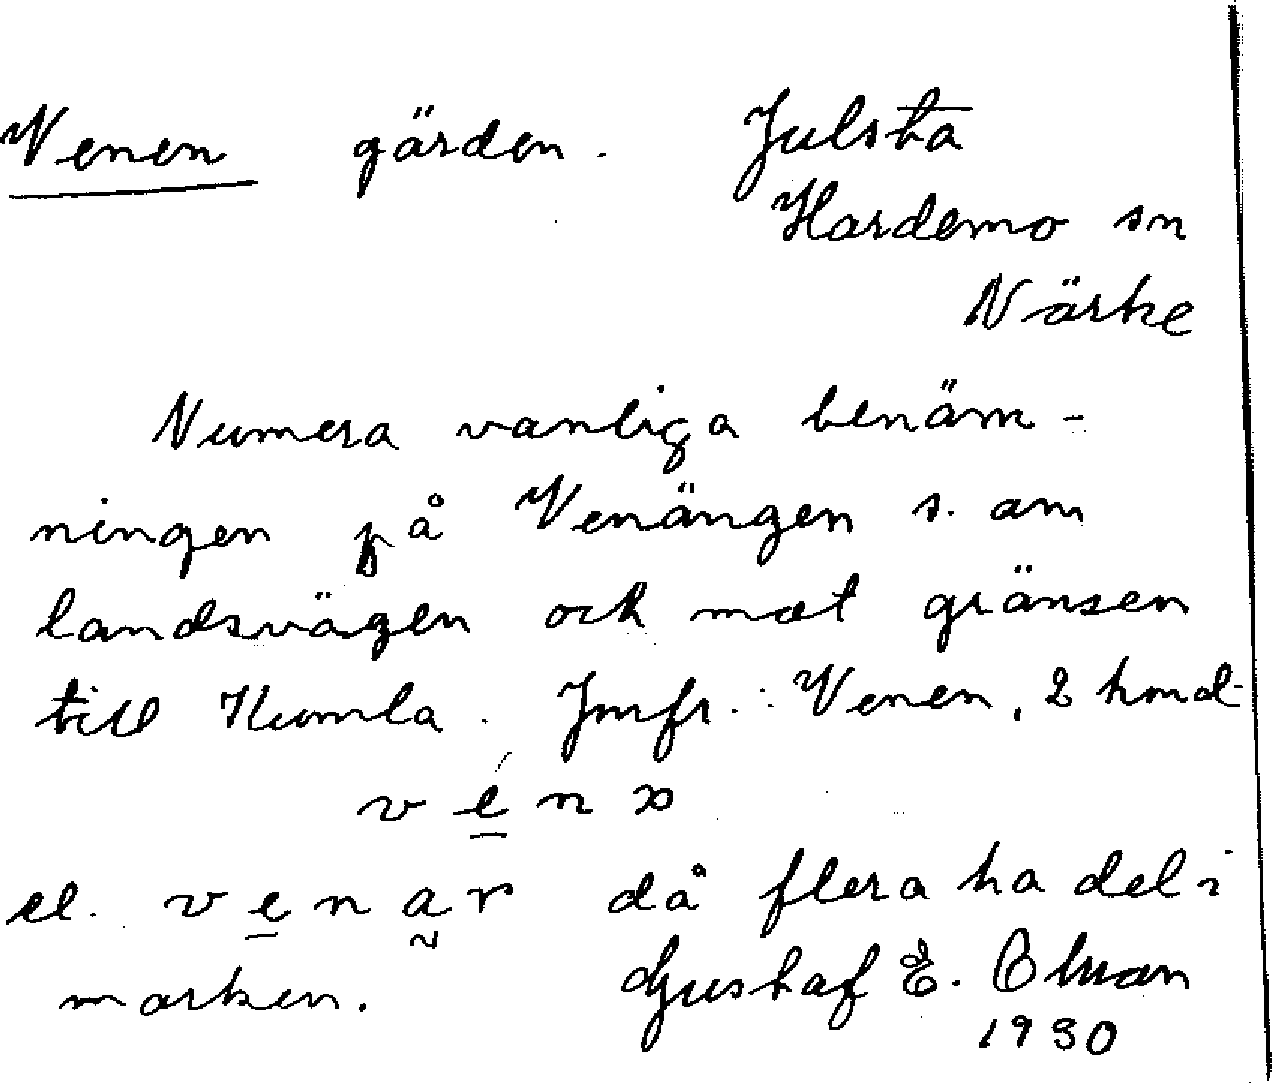 Venen gärden. Julsta
Hardemo sn
Närke
Numera vanliga benäm-
ningen på Venängen s. om
landsvägen och mot gränsen
till Kumla. Jmfr.: Venen, 2 hmd
vénx
el. venar då flera ha del i
marken. Gustaf E.
1930